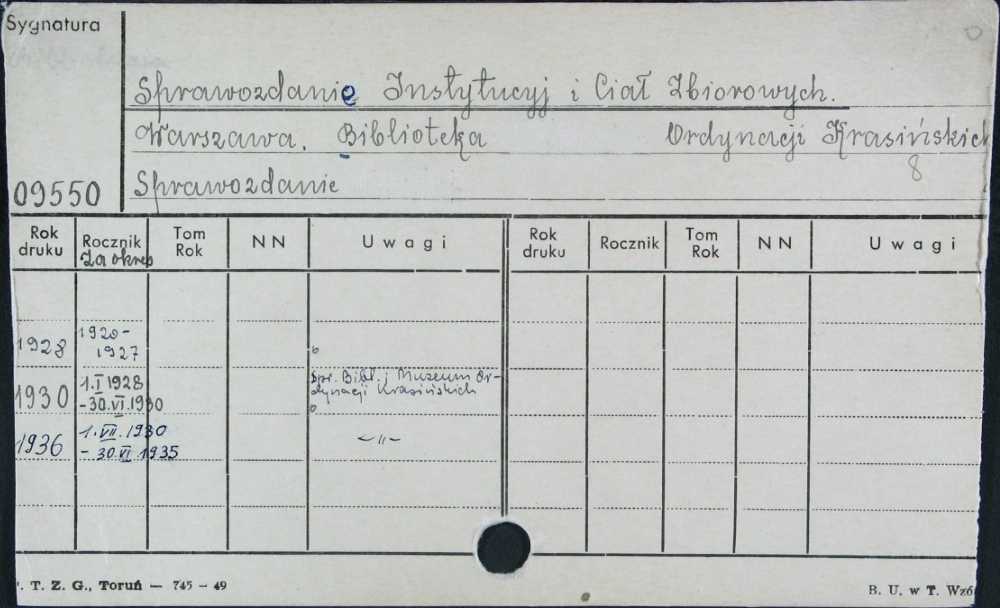 Sygnatura
Sprawozdanie Instytucyj i Ciał Zbiorowych.
Warszawa. Biblioteka Ordynacji Krasińskich
8
09550 Sprawozdanie
Rok druku Rocznik Tom Rok NN Uwagi Rok druku Rocznik Tom Rok NN Uwagi
Za okres
1928 1920-
1927
1930 1.I 1928
-30.VI.1930
Spr. Bibl. i Muzeum Or-
dynacji Krasińskich
1936 1.VII.1930
- 30.VI 1935
-"-
T. Z. G., Toruń — 745 - 49
B. U. w T. Wzó